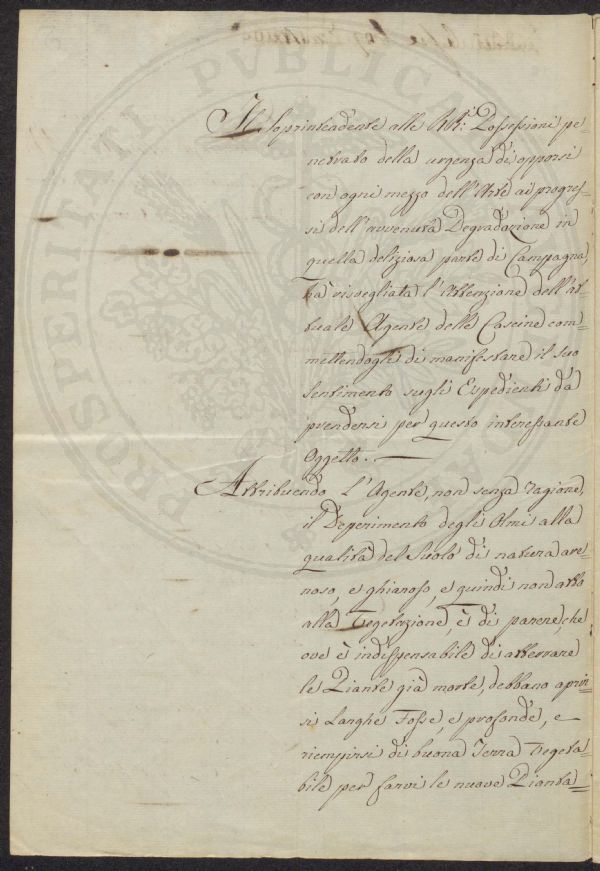 Il Soprintendente alle RR: Possessioni pe=
netrato della urgenza di opporsi
con ogni mezzo dell'Arte ai progres=
si dell'avvenuta Degradazione in
quella deliziosa parte di Campagna,
ha risvegliata l'Attenzione dell'At=
tuale Agente delle Cascine com=
mettendogli di manifestare il suo
Sentimento sugli Espedienti da
prendersi per questo interessante
Oggetto. —
Attribuendo l'Agente, non senza ragione,
il Deperimento degli Olmi alla
qualità del Suolo di natura are=
noso, e ghiaroso, e quindi non atto
alla Vegetazione, è di parere, che
ove è indispensabile di atterrare
le Piante già morte, debbano aprir=
si Larghe Fosse, e profonde, e
riempirsi di buona Terra Vegeta=
bile per farvi le nuove Pianta=
PROSPERITATI PVBLICAE